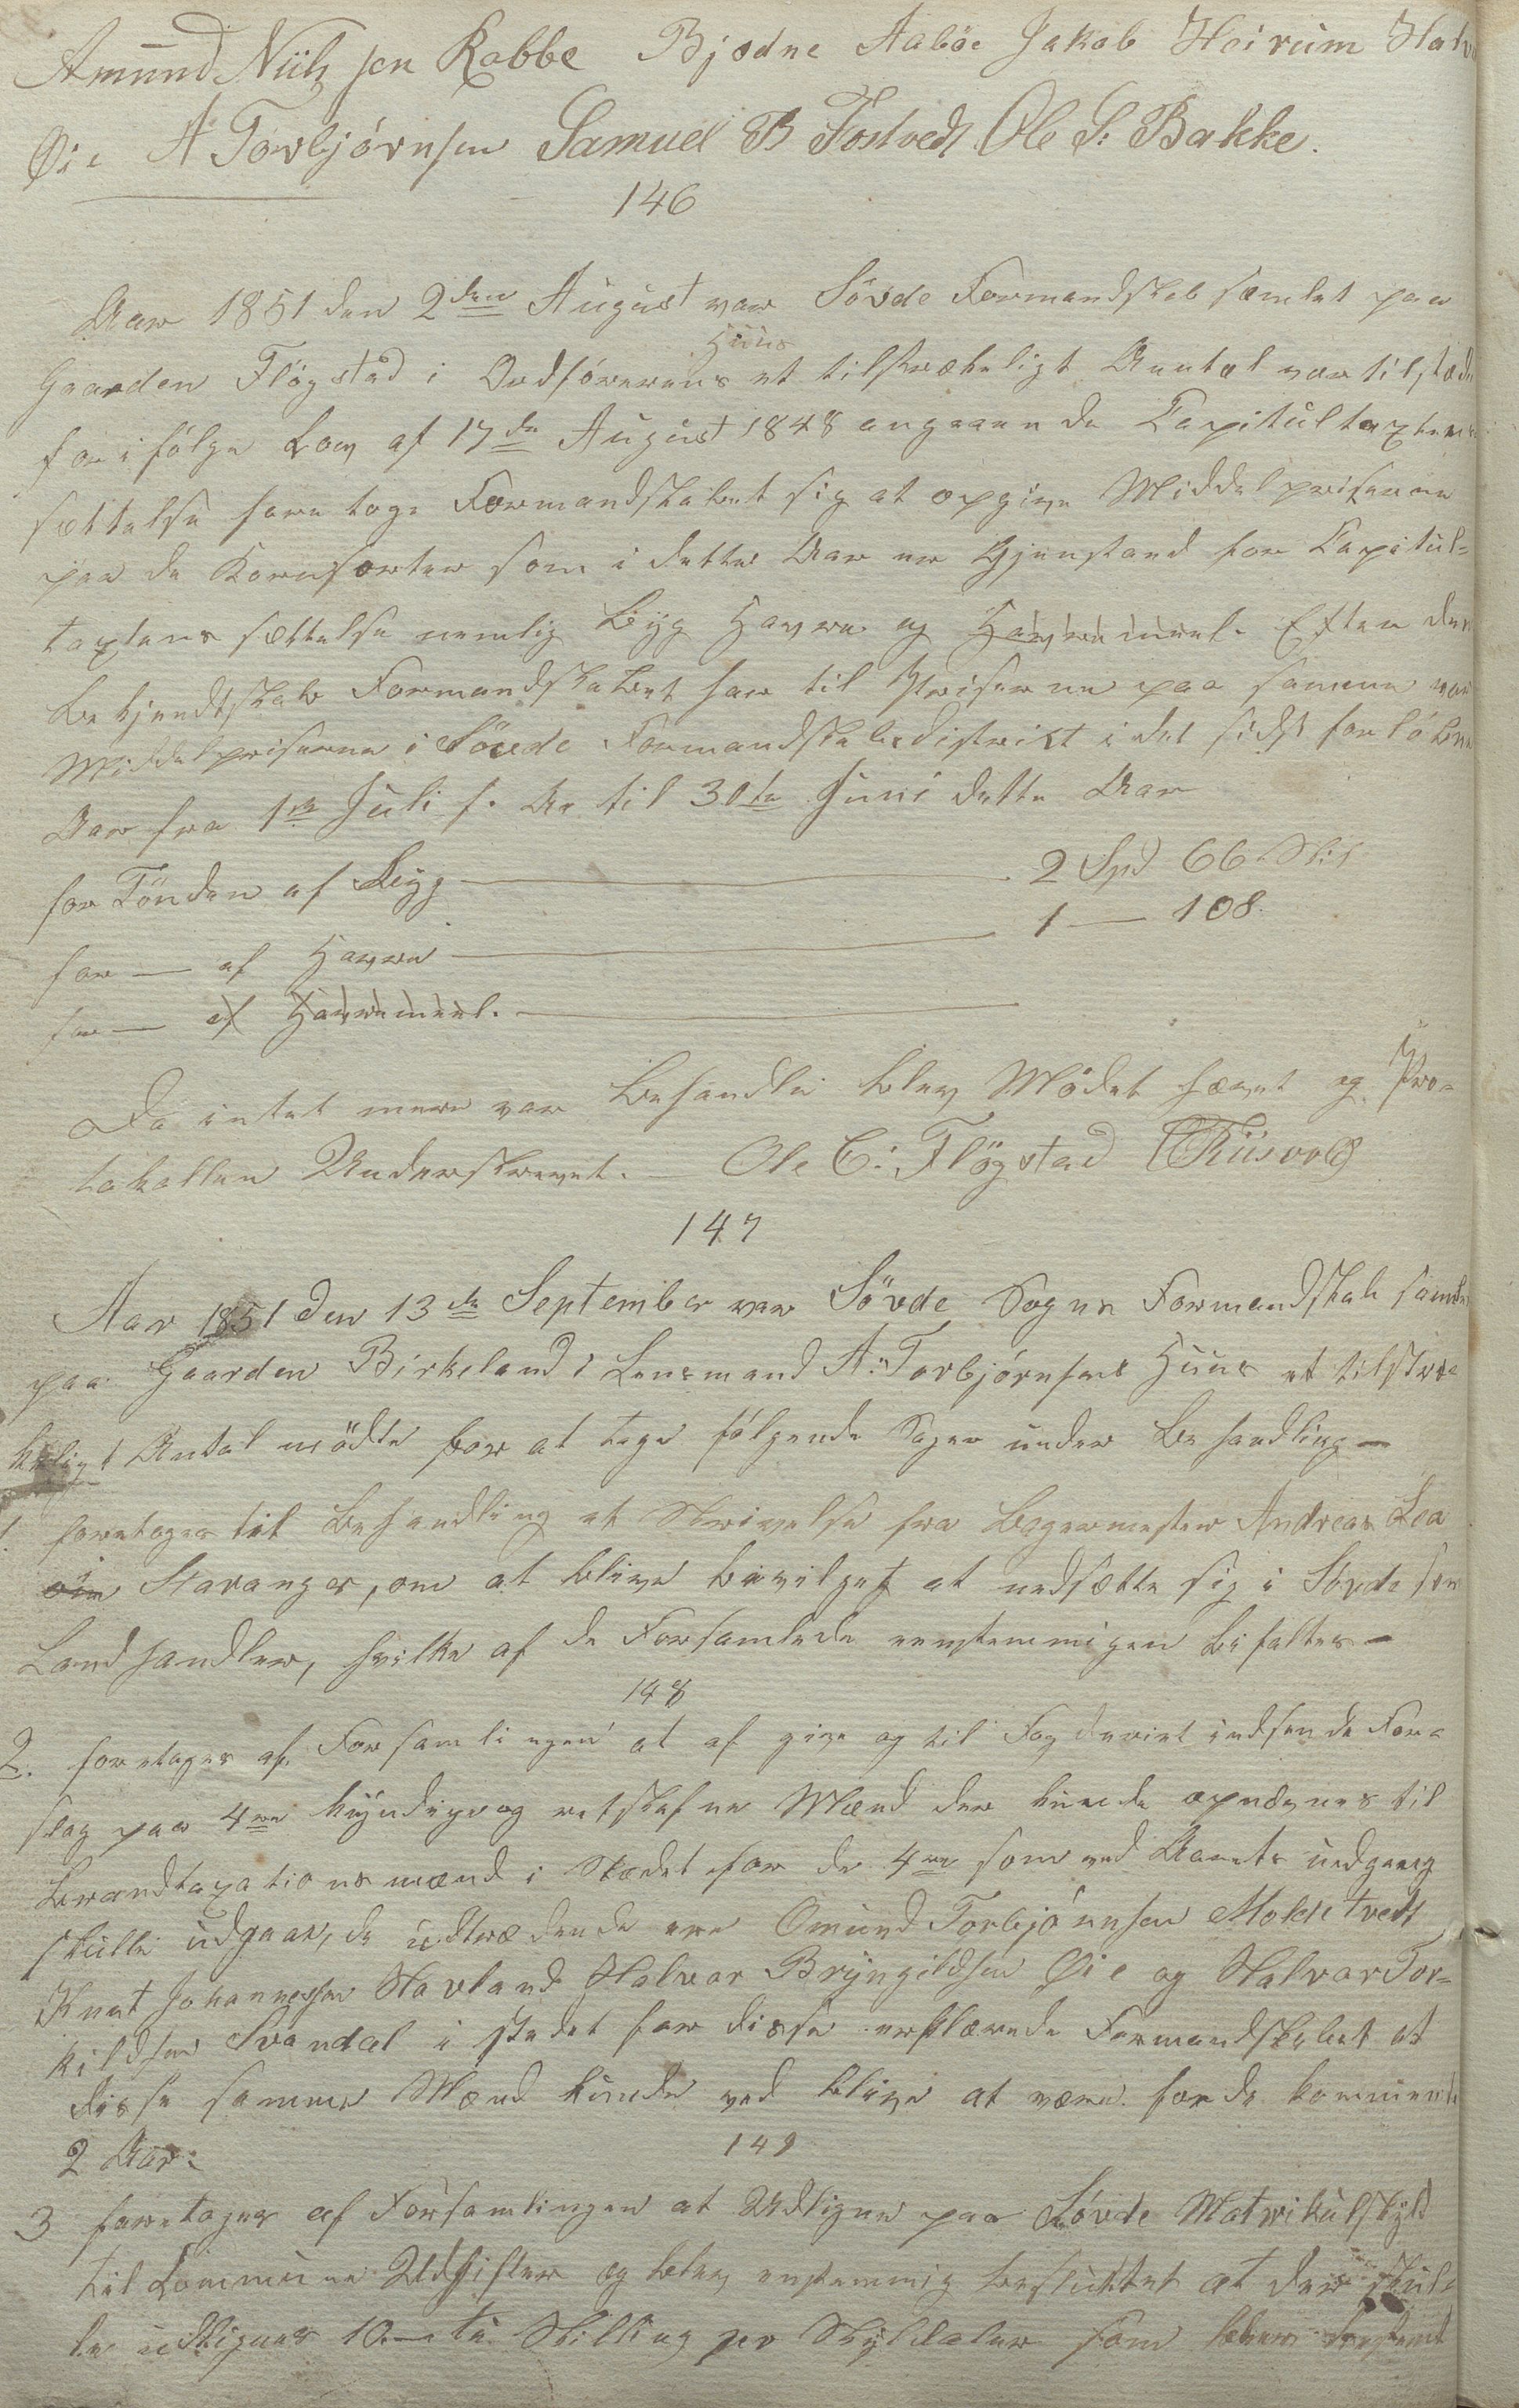 Amund Niilssen Rabbe Bjødne Aabøe Jakob Heirum Halv
Øie A Torbjörnsen Samuel B Tostvedt Ole S: Bakke.
146
Aar 1851 den 2den August var Sövde Formandskab samlet paa
Huus
Gaarden Flögstad i Ordförerens et tilstrækeligt Anntal var tilstæde
for i fölge Lov af 17de August 1848 angaaende Capitultaxtens
sættelse foretoge Formandskabet sig at opgive Middelpriserne
paa de Kornsorter som i dette Aar er Gjenstand for Capitul-
taxtens sættelse nemlig Byg Havre og Havremeel. Efter den
Bekjendtskab Formandskabet har til Priserne paa samme var
Middelpriserne i Sövde Formandskabsdistrikt i det sidst forlöbne
Aar fra 1ste Juli f. Aa til 30te Juni dette Aar
for Tönden af Byg — 2 Spd 66 Skil
for — af Havre — 1 — 108.
for — af Havremeel. —
Da intet mere var Behandle blev Mödet hævet og Pro-
tokollen Underskrevet. Ole C: Flögstad Riisvold
147
Aar 1851 den 13de September var Sövde Sogns Formandskab samlet
paa Gaarden Birkeland i Lensmand A: Torbjörnsens Huus et tilstræ-
keligt Antal mödte for at tage fölgende Sager under Behandling—
1. foretoges til Behandling et Skrivelse fra Bogermester Andreas Lea
i Stavanger, om at blive bevilget at nedsætte sig i Sövde som
Landhandler, hvilke af de Forsamlede eenstemmigen bifaltes—
148
2. foretoges af Forsamlingen at af give og til Fogderiet indsende For-
slag paa 4re kyndige og retskafne Mænd der kunde opnævnes til
Brandtaxationsmænd i Stædet for de 4re som ved Aarets udgang
skulle udgaae, de udtrædende ere Omund Torbjörnsen Molditvedt
Knut Johannessen Havland Halvor Bryngildsen Øie og Halvor Tor-
kildsen Svandal i stedet for disse erklærede Formandskabet at
disse samme Mænd kunde ved blive at være for de kommende
2 Aar.
149
3 foretoges af Forsamlingen at Udligne paa Sövde Matrikulskyld
til Commune Udgifter og blev enstemmig besluttet at der skul-
le udlignes 10— ti Skilling pr Skyldaler som